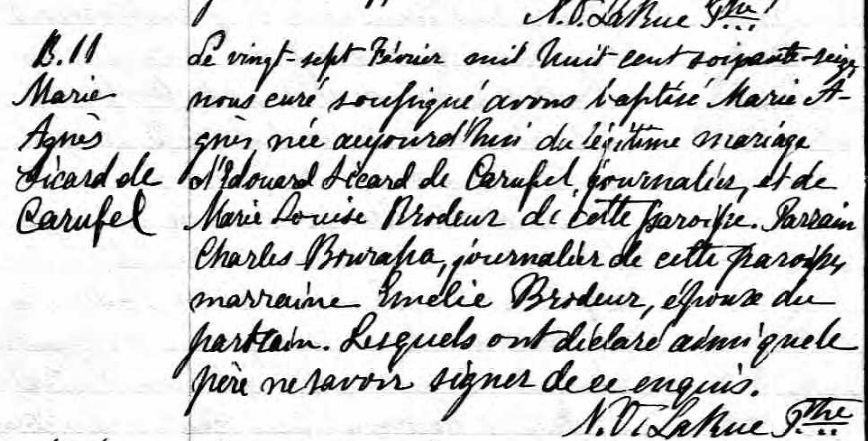 N.O. LaRue Ptre
B.11
Marie
Agnès
Sicard de
Carufel
Le vingt-sept Février mil huit-cent soixante-seize
nous curé soussigné avons baptisé Marie A-
gnès, née aujourd'hui du légitime mariage
d'Edouard Sicard de Carufel, journalier, et de
Marie Louise Brodeur de cette paroisse. Parrain
Charles Bourassa, journalier de cette paroisse,
marraine Emélie Brodeur, épouse du
parrain. Lesquels ont déclaré ainsi que le
père ne savoir signer de ce enquis.
N.O. LaRue Ptre